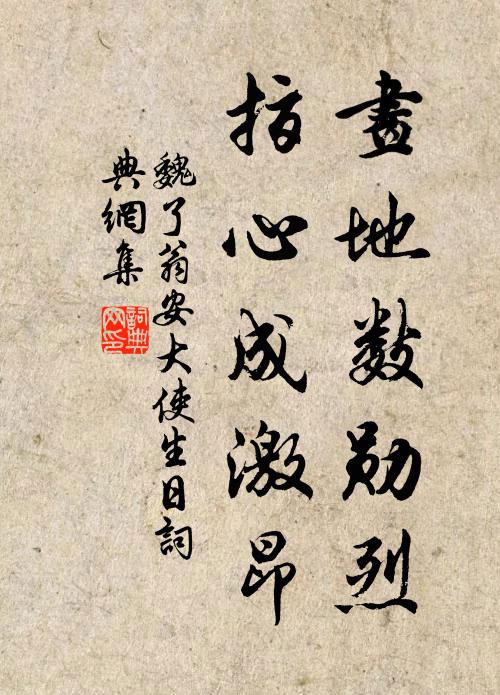 畫地数勋烈
指心成激昂
魏了翁安大使生日詞
典網集
詞典網印